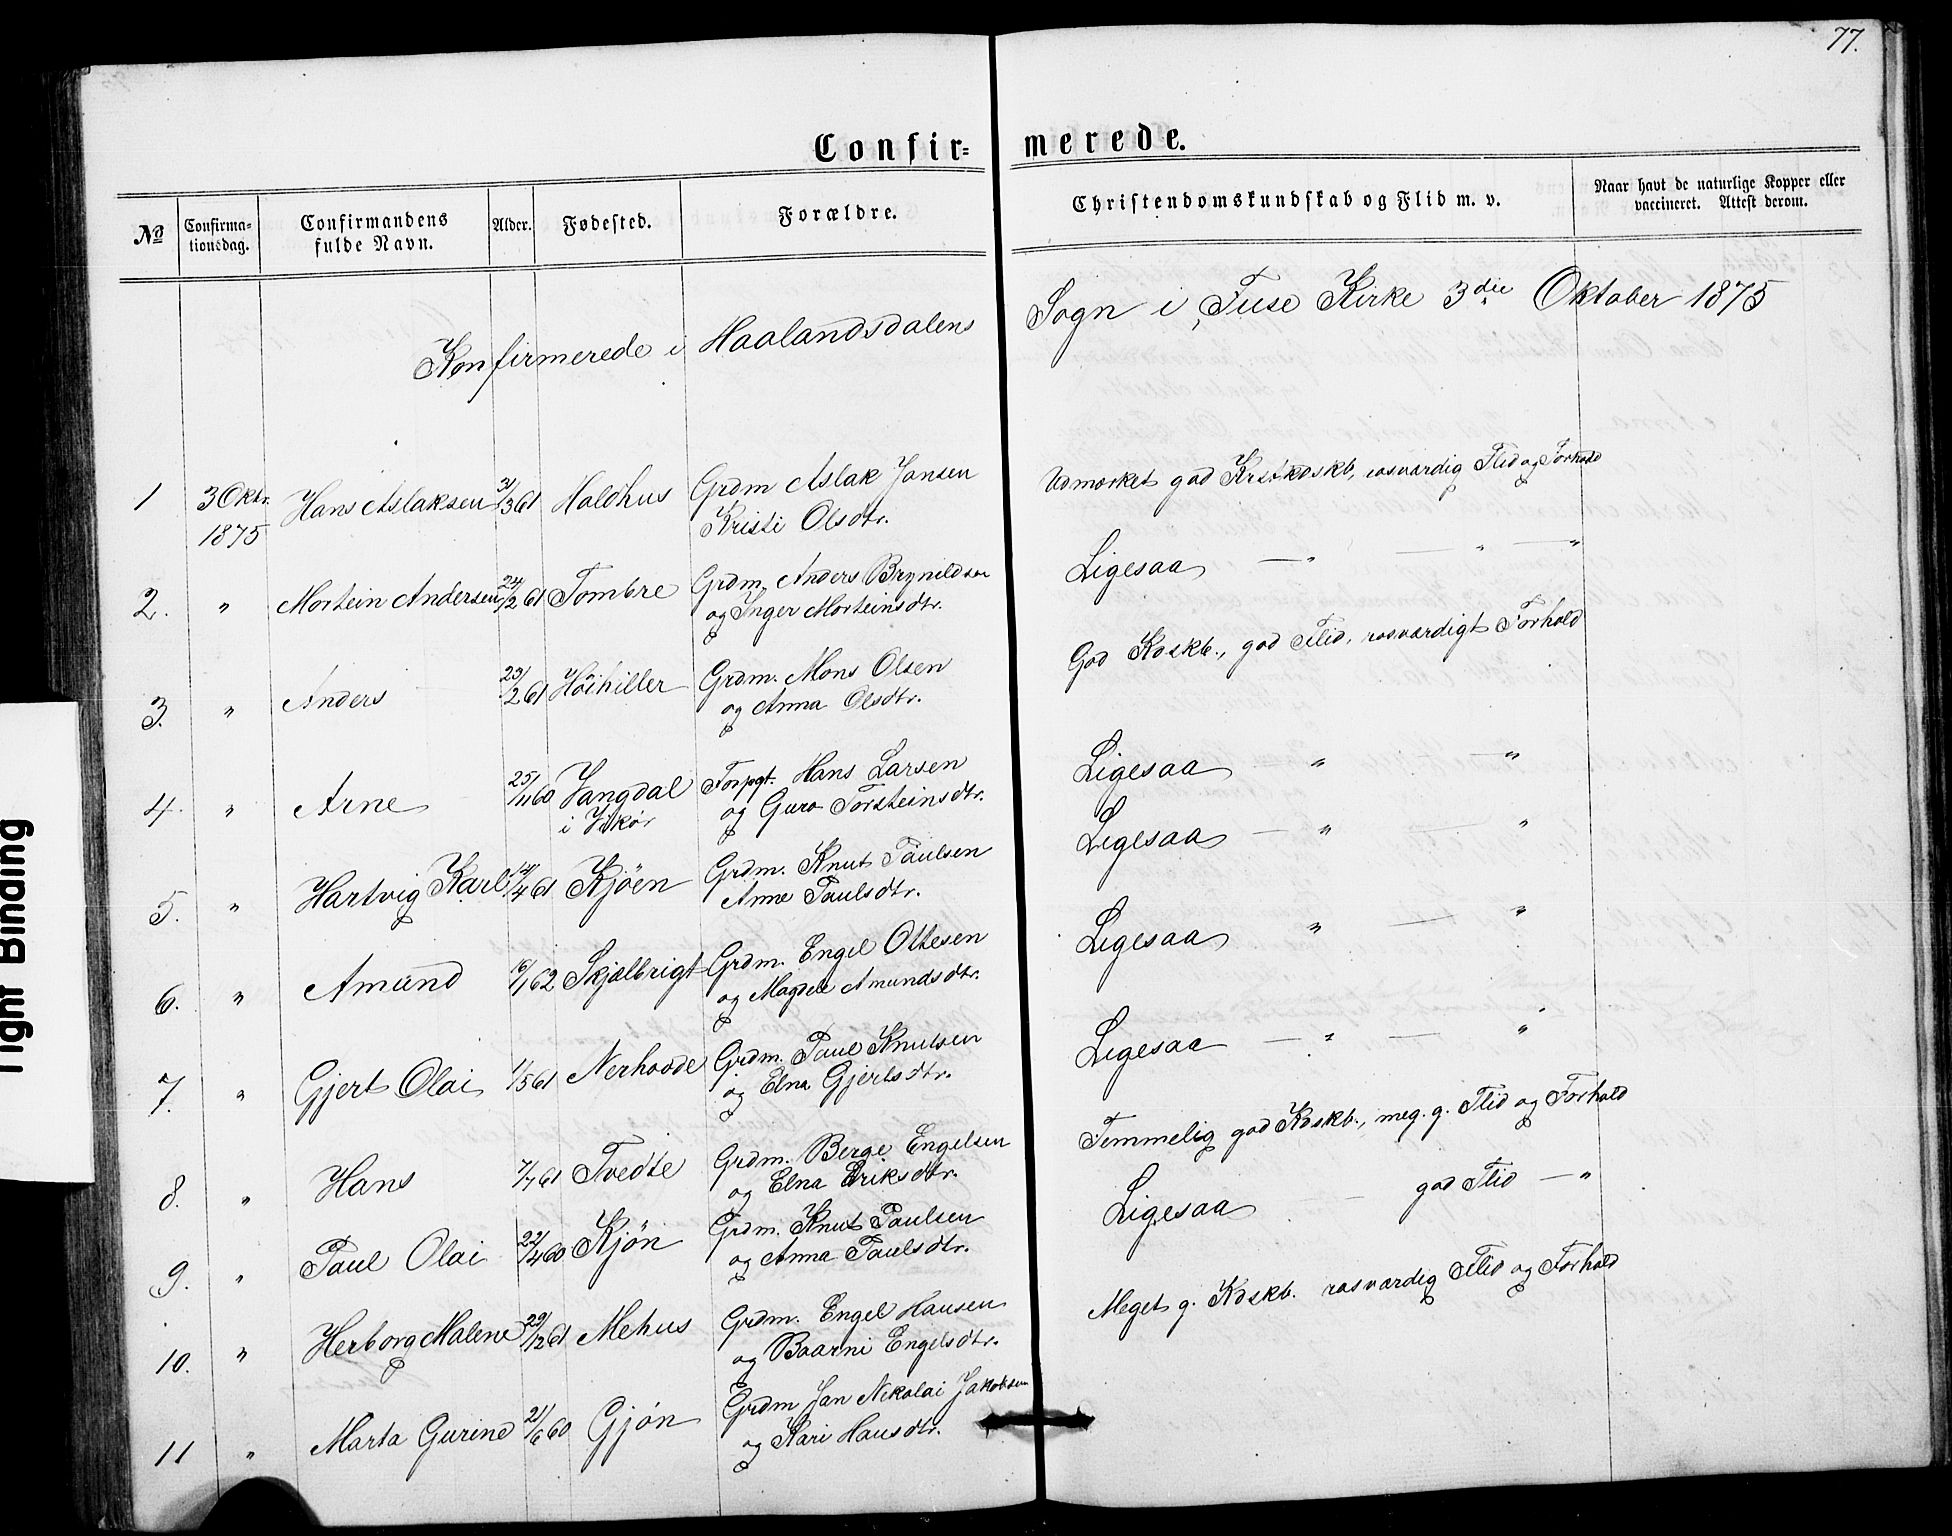 77.
Confir=merede.
No Confirmationsdag. Confirmandens fulde Navn. Alder. Fødested. Forældre. Christendomskundskab og Flid m. v. Naar havt de naturlige Kopper eller vaccineret. Attest derom.
Konfirmerede i Haalandsdalens Sogn i Fuse Kirke 3die Oktober 1875
1 3 Oktr. 1875 Hans Aslaksen 3/3 61 Haldhus Grdm Aslak Jansen
Kristi Olsdtr.
Udmærket god Krstkdskb, rosværdig Flid og Forhold
2. " Mortein Andersen 24/2 61 Tombre Grdm. Anders Brynildsen
og Inger Morteinsdtr.
Ligesaa — " — " — "
3. " Anders 23/2 61 Höihiller Grdm. Mons Olsen
og Anna Olsdtr.
God Kdskb., god Flid, rosværdigt Forhold
4. " Arne 25/11 60 Vangdal i Vikør Forpgt. Hans Larsen
og Guro Torsteinsdtr.
Ligesaa " — "
5. " Hartvig Karl 14/4 61 Kjöen Grdm. Knut Paulsen
Anne Paulsdtr.
Ligesaa — " — "
6. " Amund 16/1 62 Skjælbrigt Grdm. Engel Ottesen
og Magdele Amundsdtr.
Ligesaa " — "
7. " Gjert Olai 1/5 61 Nerhovde Grdm. Paul Knutsen
og Elna Gjertsdtr.
Ligesaa — " — "
8. " Hans 7/7 61 Tvedte Grdm. Berge Engelsen
og Elna Eriksdtr.
Temmelig god Kdskb., meg. g. Flid og Forhold
9. " Paul Olai 22/4 60 Kjön Grdm. Knut Paulsen
og Anna Paulsdtr.
Ligesaa — god Flid — "
10. " Herborg Malene 29/12 61 Mehus Grdm. Engel Hansen
og Baarni Engelsdtr.
Meget g. Kdskb. rosværdig Flid og Forhold
11 " Marta Gurine 21/6 60 Gjön Grdm Jan Nikolai Jakobsen
og Kari Hansdtr.
Tight Binding